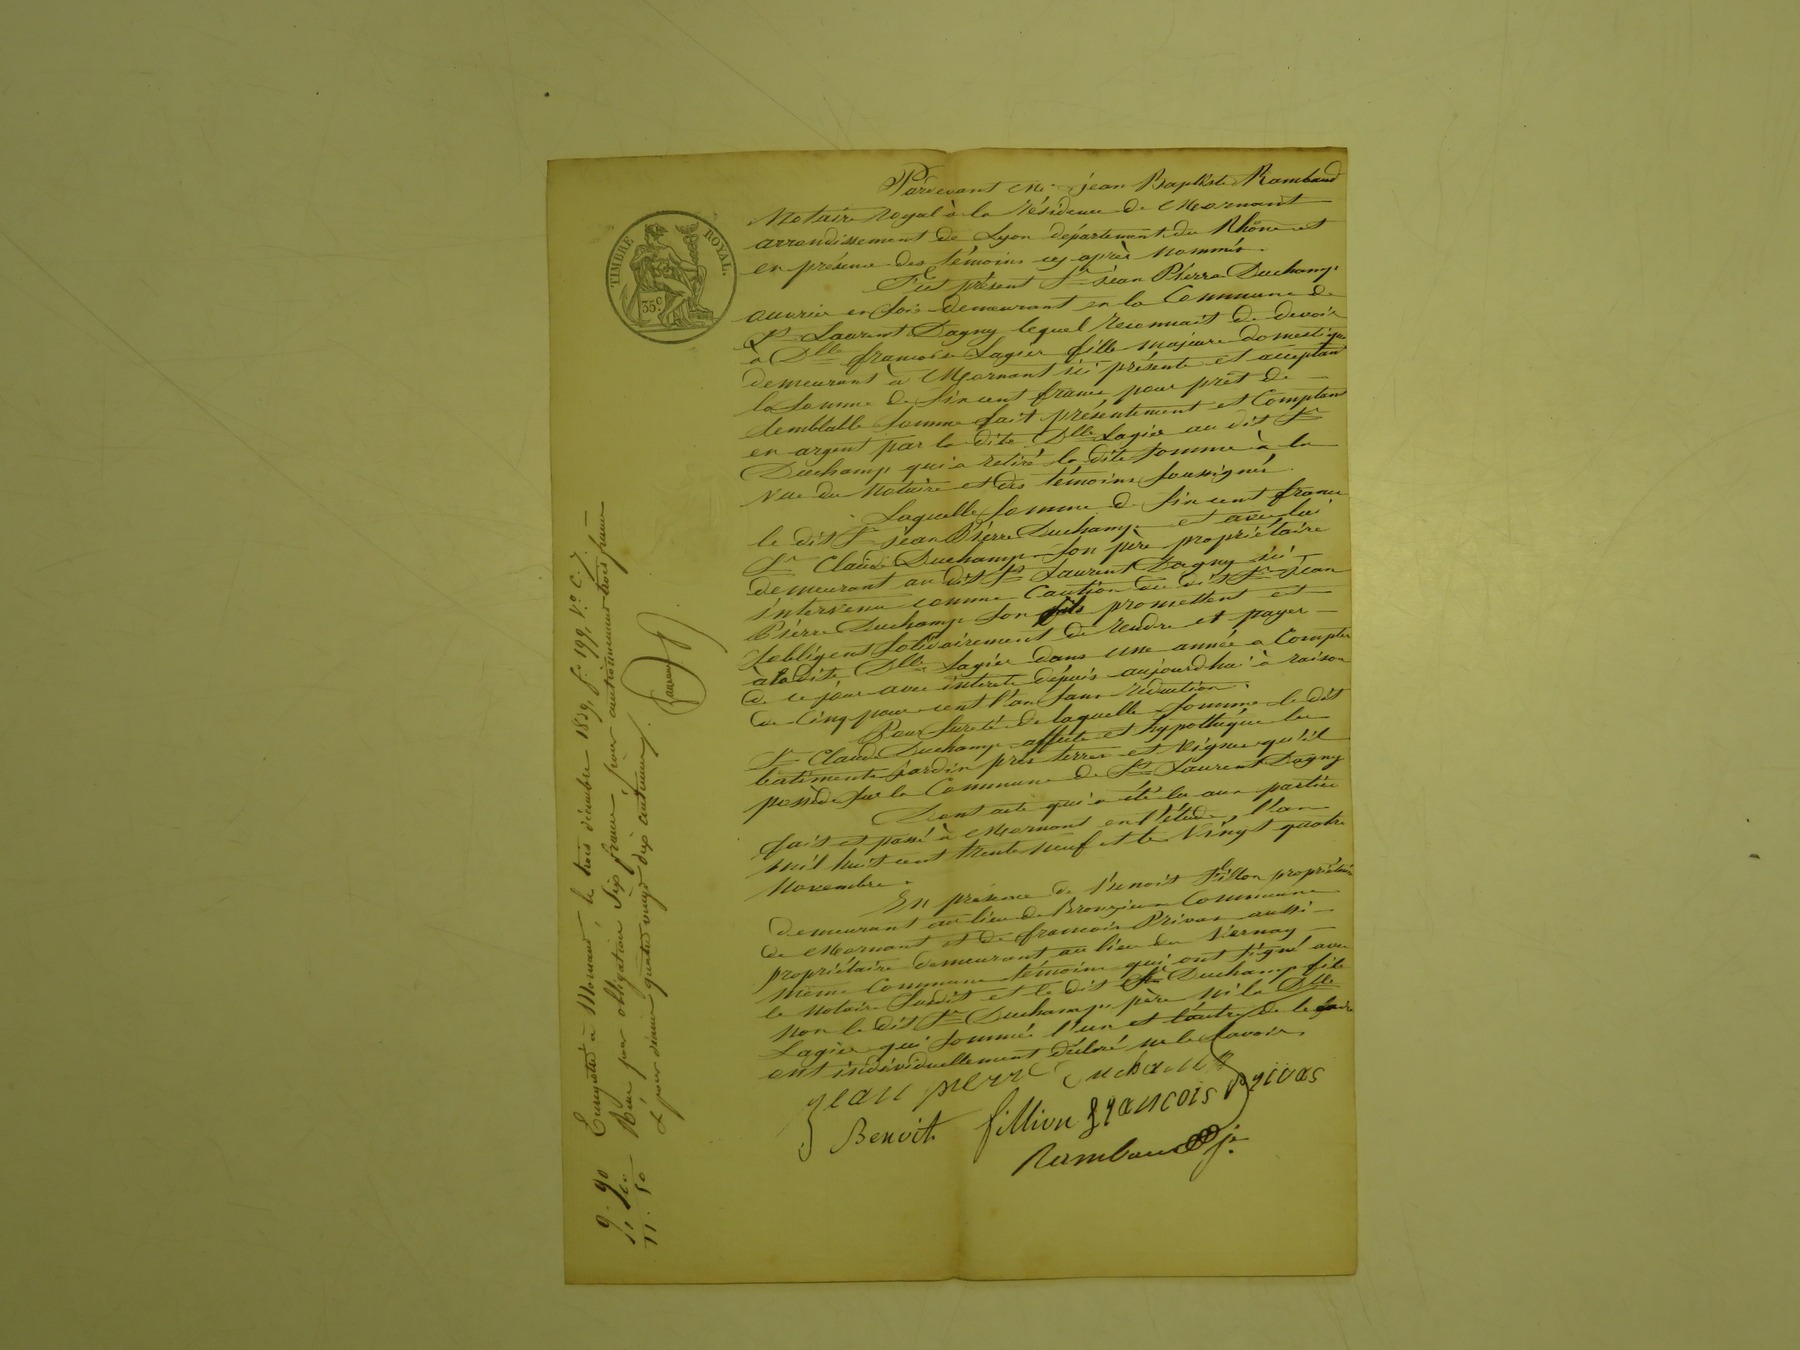 TIMBRE ROYAL.
35c
Pardevant Me. jean Baptiste Rambaud
Notaire royal à la résidence de Mornant
arrondissement de Lyon département du Rhône et
en présence des témoins cy après nommés.
Fut présent Sr. jean Pierre Duchamp
ouvrier en soie demeurant en la Commune de
St. Laurent Dagny lequel reconnait de devoir
a Dlle françoise Lagier fille majeure domestique
demeurant à Mornant ici présente et acceptant
la somme de six cent francs pour prêt de
semblable somme fait présentement et Comptant
en argent par la dite Dlle Lagier au dit Sr.
Duchamp qui a retiré la dite somme à la
vue du Notaire et des témoins soussignés.
Laquelle somme de six cent francs
le dit Sr. jean Pierre Duchamp et avec lui
Sr. Claude Duchamp son père propriétaire
demeurant au dit St. Laurent Dagny ici
intervenu comme Caution du dit Sr. jean
Pierre Duchamp son fils promettent et
sobligent solidairement de rendre et payer
à la dite Dlle Lagier dans une année a Compter
de ce jour avec intérêts dépuis aujourd'hui à raison
de Cinq pour cent l'an sans réduction.
Pour sureté de laquelle somme le dit
Sr. Claude Duchamp affecte et hypothèque les
batiments jardin prés terres et vignes qu'il
possède sur la Commune de St. Laurent Dagny
Dont acte qui a été lu aux parties
fait et passé à Mornant en l'étude, l'an
mil huit cent trente neuf et le vingt quatre
Novembre.
En présence de Benoit fillon propriétaire
demeurant au lieu de Commune
de Mornant et de francois Privas aussi
propriétaire demeurant au lieu du Vernay
même Commune témoins qui ont signé avec
le Notaire susdit et le dit Sr. Duchamp fils
Non le dit Sr. Duchamp père ni la Dlle
Lagier qui sommés l'un et l'autre de le faire
ont individuellement déclaré ne le savoir.
jean pierre Duchamp
Benoit fillion françois privas
Rambaud je
Enregistré à Mornant, le trois décembre 1839, fo. 199, Vo. C. 7.
Reçu pour obligation six francs, pour cautionnement trois francs
& pour décime quatre vingt dix centimes.
9. 90
11. 50